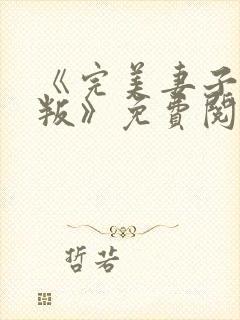 《完美妻子
叛》免費閱
哲若